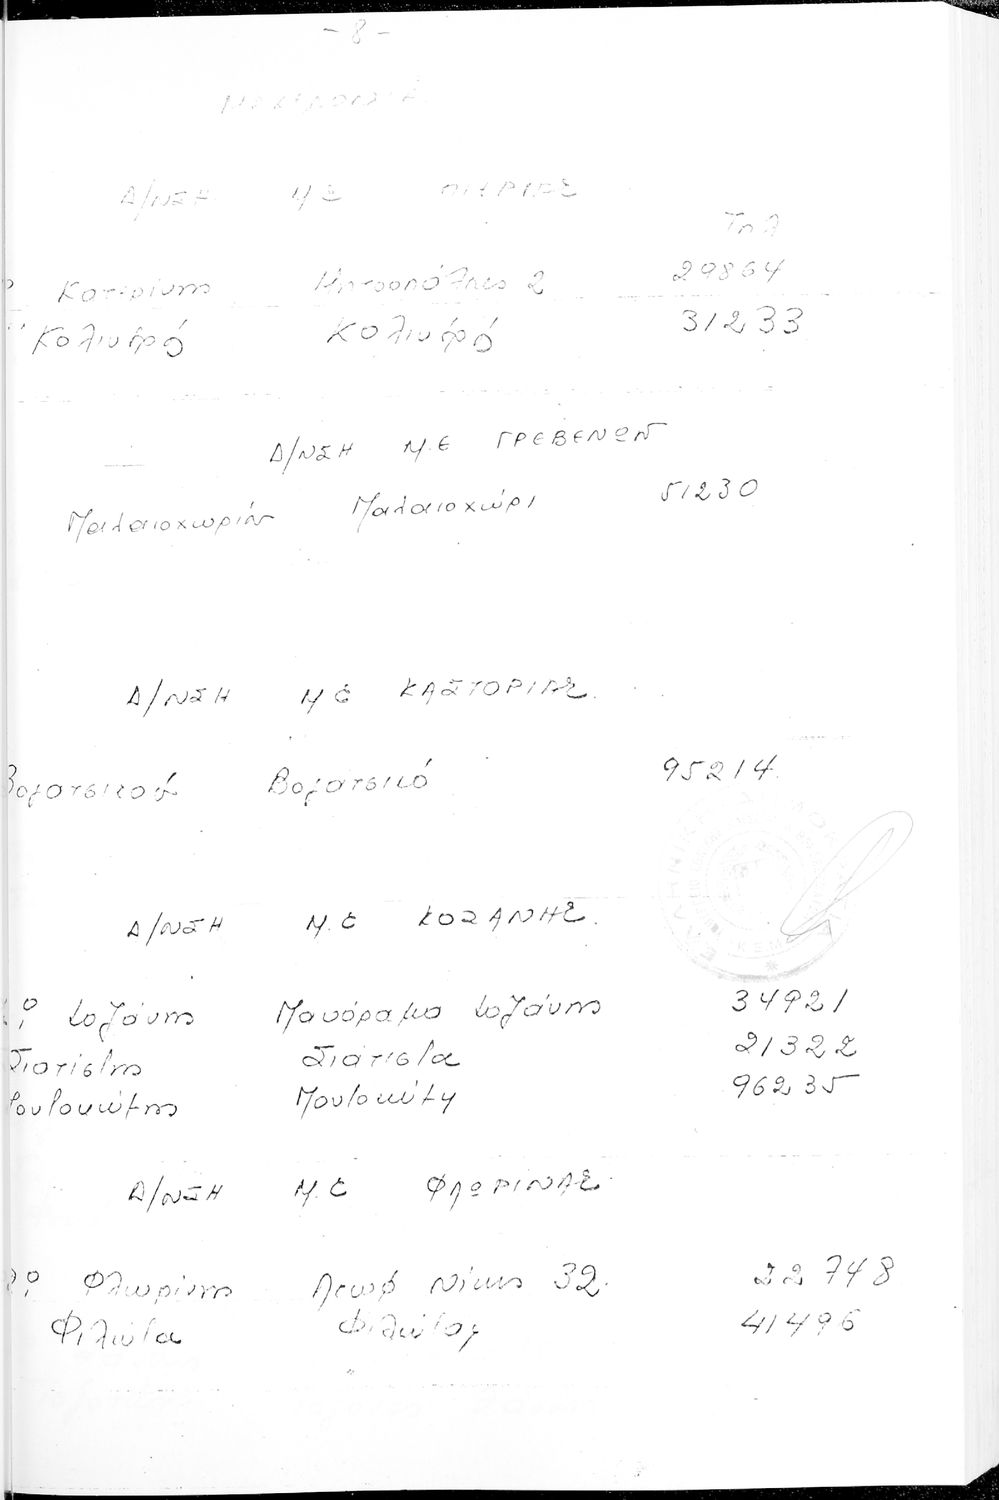 - 8 -
ΜΑΚΕΔΟΝΙΑ
Δ/ΝΣΗ Μ.Ε ΠΙΕΡΙΑΣ
Τηλ
Κατερίνης Μητροπόλεως 2 29864
Κολινδρού Κολινδρό 31233
Δ/ΝΣΗ Μ.Ε ΓΡΕΒΕΝΩΝ
Παλαιοχωρίου Παλαιοχώρι 51230
Δ/ΝΣΗ Μ.Ε ΚΑΣΤΟΡΙΑΣ.
Βογατσικού Βογατσικό 95214
Δ/ΝΣΗ Μ.Ε ΚΟΖΑΝΗΣ.
Κοζάνης Πανόραμα Κοζάνης 34921
Σιατίστης Σιάτιστα 21322
96235
Δ/ΝΣΗ Μ.Ε ΦΛΩΡΙΝΑΣ
Φλωρίνης Λεωφ Νίκης 32. 22748
Φιλώτα Φιλώτας 41496